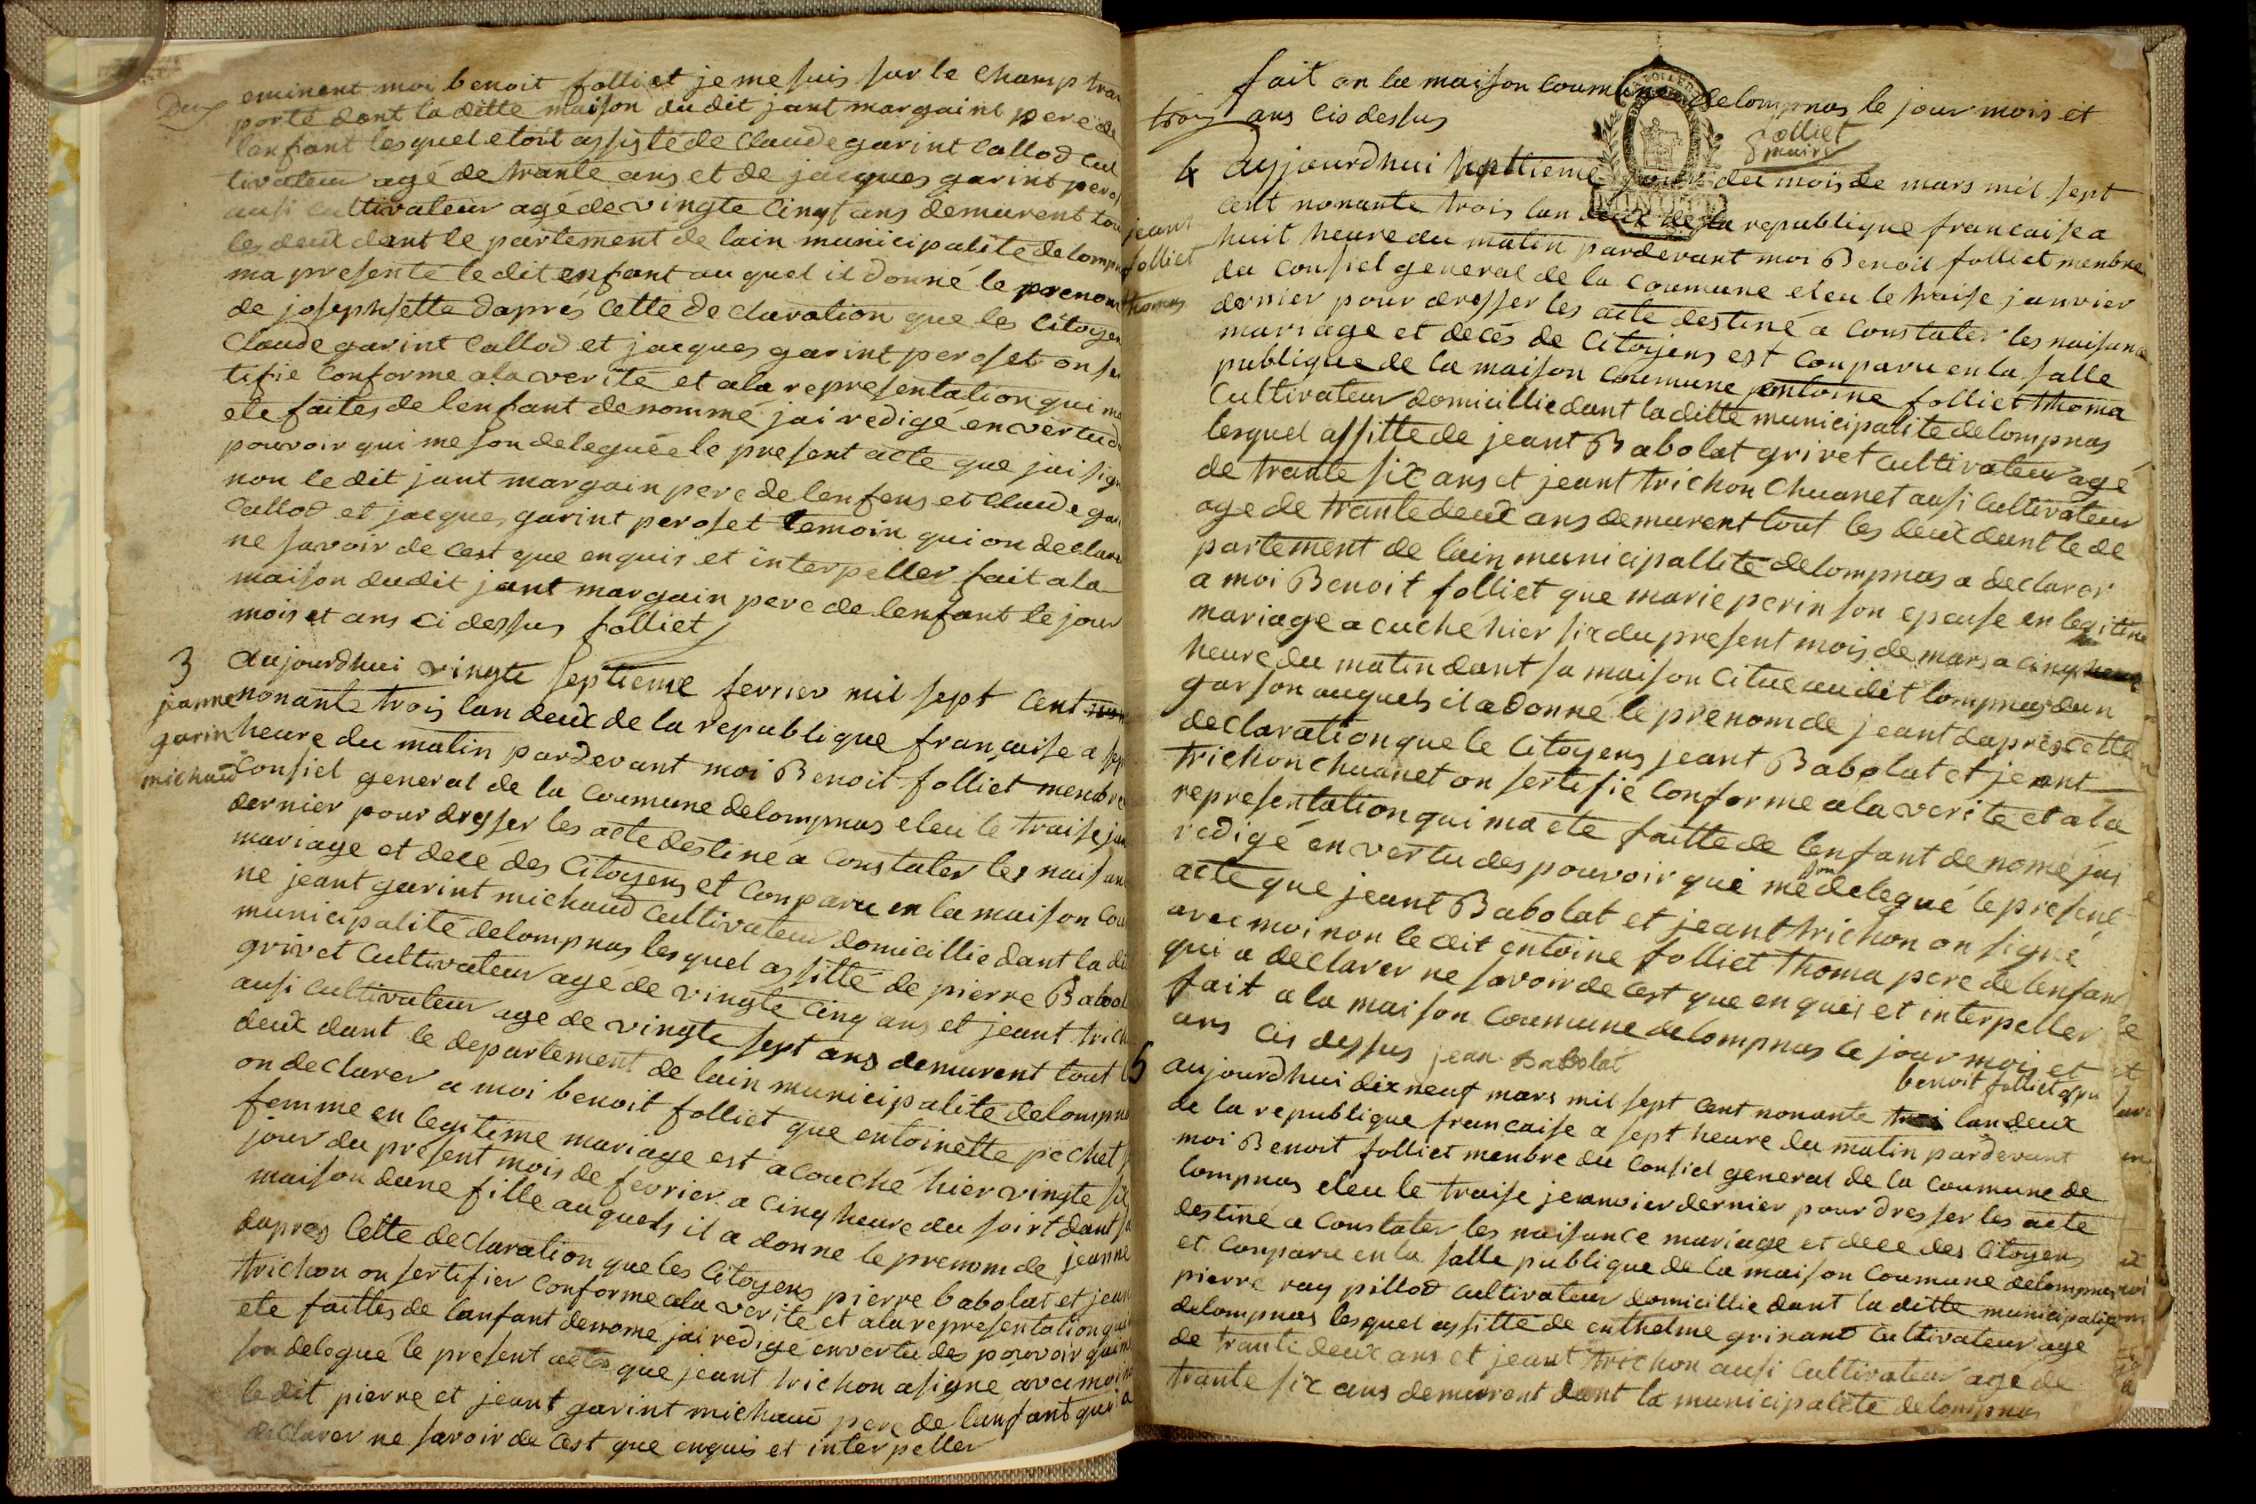 Deux
eminent moi benoit folliet je me suis sur le champ tran
porté dant la ditte maison dudit jant margaint pere de
lanfant lesquel etoit assisté de Claude garint Callod cul
tivateur agé de trante ans et de jacques garint peros
ausi cultivateur agé de vingte cinq ans demurent tou
les deux dant le partement de lain municipalite de lompn
ma presenté le dit enfant au quel il donné le prenom
de josephsette daprés cette declaration que les Citoyen
Claude garint Callod et jacques garint peroset on se
tifié Conforme ala verité et ala representation qui ma
ete faites de lenfant denommé jai redigé en vertu de
pouvoir qui me son deleguée le present acte que jai sign
non le dit jant margain pere de lenfens et Claude gar
Callod et jacques garint peroset temoin qui on declare
ne savoir de cest que enquis et interpeller fait ala
maison dudit jant margain pere de lenfant le jour
mois et ans ci dessus folliet
3
jeanne
garin
michaud
aujourdhui vingte septieme fevrier mil sept cent
nonante trois lan deux de la republique française a sep
heure du matin pardevant moi Benoit folliet menbre
Consiel general de la Coumune delompnas eleu le traise jan
dernier pour dresser les acte destiné a Constater les naisan
mariage et decé des Citoyens et Conparu en la maison Cou
ne jeant garint michaud cultivateur domicillie dant la di
municipalité delompnas lesquel assitté de pierre Babol
grivet Cultivateur agé de vingte cinq ans et jeant trich
ausi cultivateur age de vingte sept ans demurent tout l
deux dant le departement de lain municipalite delompna
on declarer a moi benoit folliet que entoinette pechet s
femme en legitime mariage est acouché hier vingte six
jour du present mois de fevrier a cinq heure du soirt dant sa
maison deune fille auquels il a donne le prenom de jeanne
dapres Cette declaration que les Citoyens pierre babolat et jean
trichon on sertifier Conforme ala verité et ala representation qui
ete faittes de lanfant denomé jai redigé envertu des pouvoir qui m
son delegué le present acte que jeant trichon a signé avec moi n
le dit pierre et jeant garint michaud pere de lanfant qui a
declarer ne savoir de cest que enquis et interpeller
trois
fait an la maison Coumune delompnas le jour mois et
ans cis dessus
folliet
maire
MINUTE
4
jeant
folliet
thomas
aujourdhui septtieme jour du mois de mars mil sept
cent nonante trois lan deux de la republique francaise a
huit heure du matin pardevant moi Benoit folliet menbre
du Consiel general de la Coumune eleu le traise janvier
dernier pour dresser les acte destiné a Constater les naisanc
mariage et decés de Citoyens est Conparu en la salle
publique de la maison Coumune entoine folliet thoma
Cultivateur domicillie dant laditte municipalite delompnas
lesquel assitte de jeant Babolat grivet cultivateur agé
de trante six ans et jeant trichon Chuanet ausi Cultivateur
age de trante deux ans demurent tout les deux dant le de
partement de lain municipallité delompnas a declarer
a moi Benoit folliet que marie perin son epouse en legitime
mariage a cuché hier six du present mois de mars a cinq
heure du matin dant sa maison citue au dit lompnas dun
garson auquels il a donné le prenom de jeant daprès cette
declaration que le Citoyens jeant Babolat et jeant
trichon chuanet on sertifié Conforme ala verité et ala
representation qui ma eté faitte de lenfant denomé jai
redigé en vertu des pouvoir qui me son delegué le present
acte que jeant Babolat et jeant trichon on signé
avec moi non le dit entoine folliet thoma pere de lenfan
qui a declarer ne savoir de cest que en quis et interpeller
fait a la maison Coumune delompnas le jour mois et
ans cis dessus jean Babolat
benoit folliet
5
aujourdhui dix neuf mars mil sept cent nonante trois lan deux
de la republique francaise a sept heure du matin pardevant
moi Benoit folliet menbre du Consiel general de la Coumune de
lompnas eleu le traise jeanvier dernier pour dresser les acte
destiné a Constater les naisance mariage et decé des Citoyens
et Conparu en la salle publique de la maison Coumune delompnas
pierre ray pillod cultivateur domicillie dant la ditte municipalite
delompnas lesquel assitté de enthelme grinand Cultivateur age
de trante deux ans et jeant trichon ausi Cultivateur age de
trante six ans demurent dant la municipalite delompnas